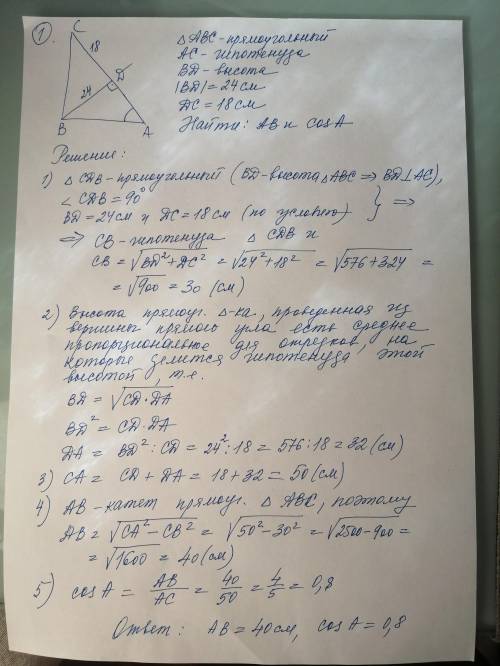 1.
C
18
D
24
B
A
△ABC - прямоугольный
AC - гипотенуза
BD - высота
|BD| = 24 см
DC = 18 см
Найти: AB и cosA
Решение:
1) △ CDB - прямоугольный (BD - высота △ABC ⇒ BD⊥AC),
∠ CDB = 90°
BD = 24 см и DC = 18 см (по условию) } ⇒
⇒ CB - гипотенуза △ CDB и
CB = √(BD² + DC²) = √(24² + 18²) = √(576 + 324) =
= √900 = 30 (см)
2) Высота прямоуг. △-ка, проведенная из
вершины прямого угла есть среднее
пропорциональное для отрезков, на
которые делится гипотенуза этой
высотой, т.е.
BD = √(CD·DA)
BD² = CD·DA
DA = BD² : CD = 24² : 18 = 576 : 18 = 32 (см)
3) CA = CD + DA = 18 + 32 = 50 (см)
4) AB - катет прямоуг. △ ABC, поэтому
AB = √(CA² - CB²) = √(50² - 30²) = √(2500 - 900) =
= √1600 = 40 (см)
5) cosA = AB/AC = 40/50 = 4/5 = 0,8
Ответ: AB = 40 см, cosA = 0,8